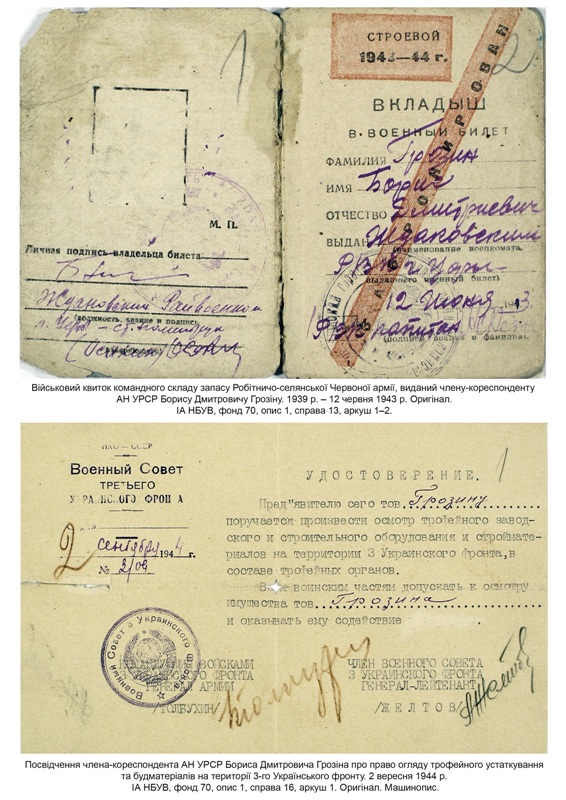 1
М. П.
Личная подпись владельца билета
(должность, звание и подпись)
2
СТРОЕВОЙ
1943—44 г.
ВКЛАДЫШ
В ВОЕННЫЙ БИЛЕТ
ФАМИЛИЯ Грозин
ИМЯ Борис
ОТЧЕСТВО Дмитриевич
ВЫДАН
(наименование военкомата,
выдавшего военный билет)
12 Июня 1943
(подпись, звание и фамилия)
Військовий квиток командного складу запасу Робітничо-селянської Червоної армії, виданий члену-кореспонденту
АН УРСР Борису Дмитровичу Грозіну. 1939 р. – 12 червня 1943 р. Оригінал.
ІА НБУВ, фонд 70, опис 1, справа 13, аркуш 1–2.
НКО — СССР
Военный Совет
ТРЕТЬЕГО
УКРАИНСКОГО ФРОНТА
2 сентября 1944 г.
№ 2/09
1
УДОСТОВЕРЕНИЕ.
Пред"явителю сего тов. Грозину
поручается произвести осмотр трофейного завод-
ского и строительного оборудования и строймате-
риалов на территории 3 Украинского фронта, в
составе трофейных органов.
воинским частям допускать к осмотру
имущества тов. Грозина
и оказывать ему содействие
Военный Совет 3 Украинского фронта
КОМАНДУЮЩИЙ ВОЙСКАМИ
3 УКРАИНСКОГО ФРОНТА
ГЕНЕРАЛ АРМИИ
/ТОЛБУХИН/
Толбухин
ЧЛЕН ВОЕННОГО СОВЕТА
3 УКРАИНСКОГО ФРОНТА
ГЕНЕРАЛ-ЛЕЙТЕНАНТ
/ЖЕЛТОВ/
АЖелтов
Посвідчення члена-кореспондента АН УРСР Бориса Дмитровича Грозіна про право огляду трофейного устаткування
та будматеріалів на території 3-го Українського фронту. 2 вересня 1944 р.
ІА НБУВ, фонд 70, опис 1, справа 16, аркуш 1. Оригінал. Машинопис.